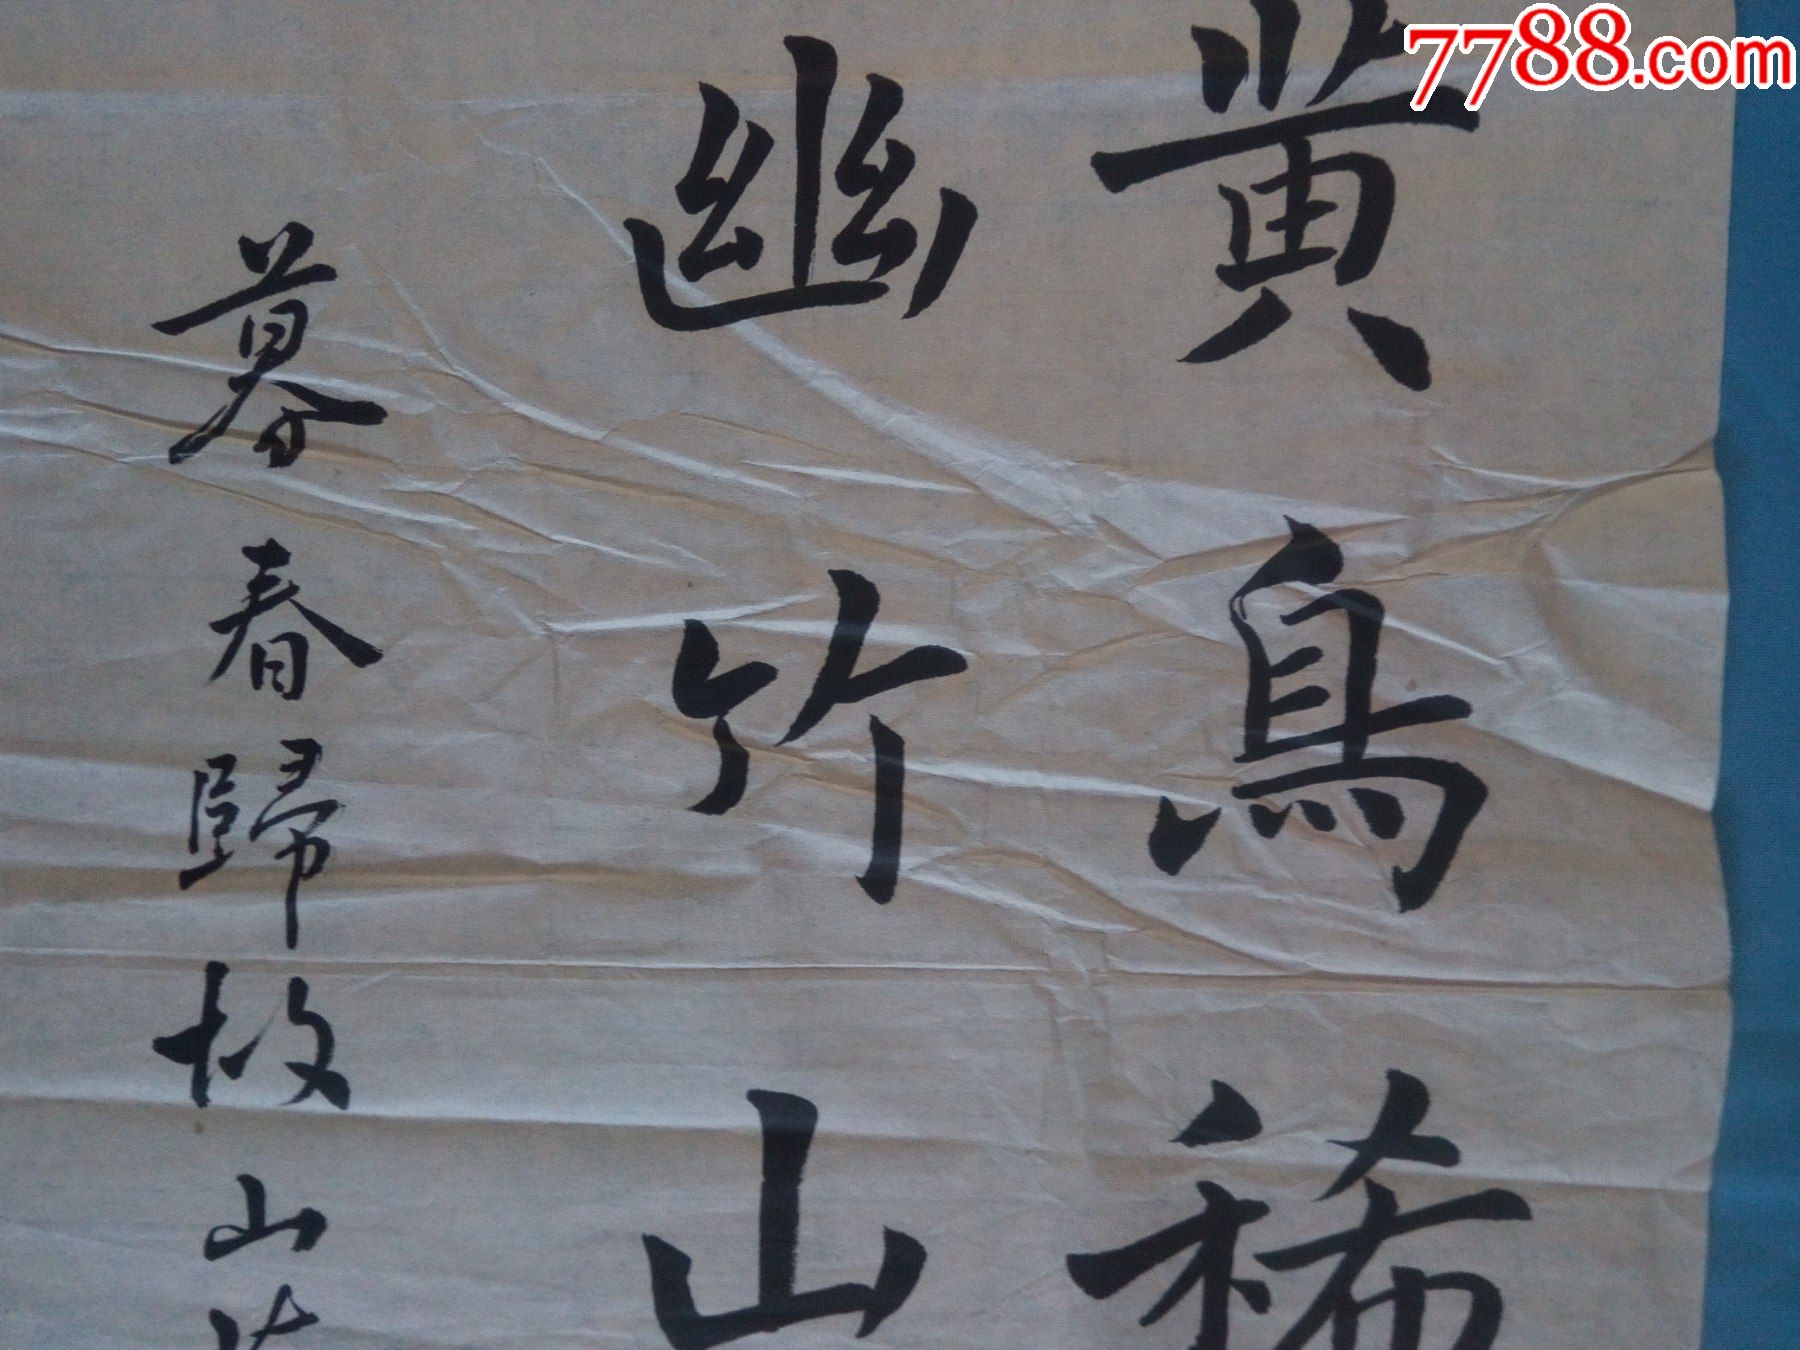 7788.com
黄鳥稀
幽竹山
暮春歸故山